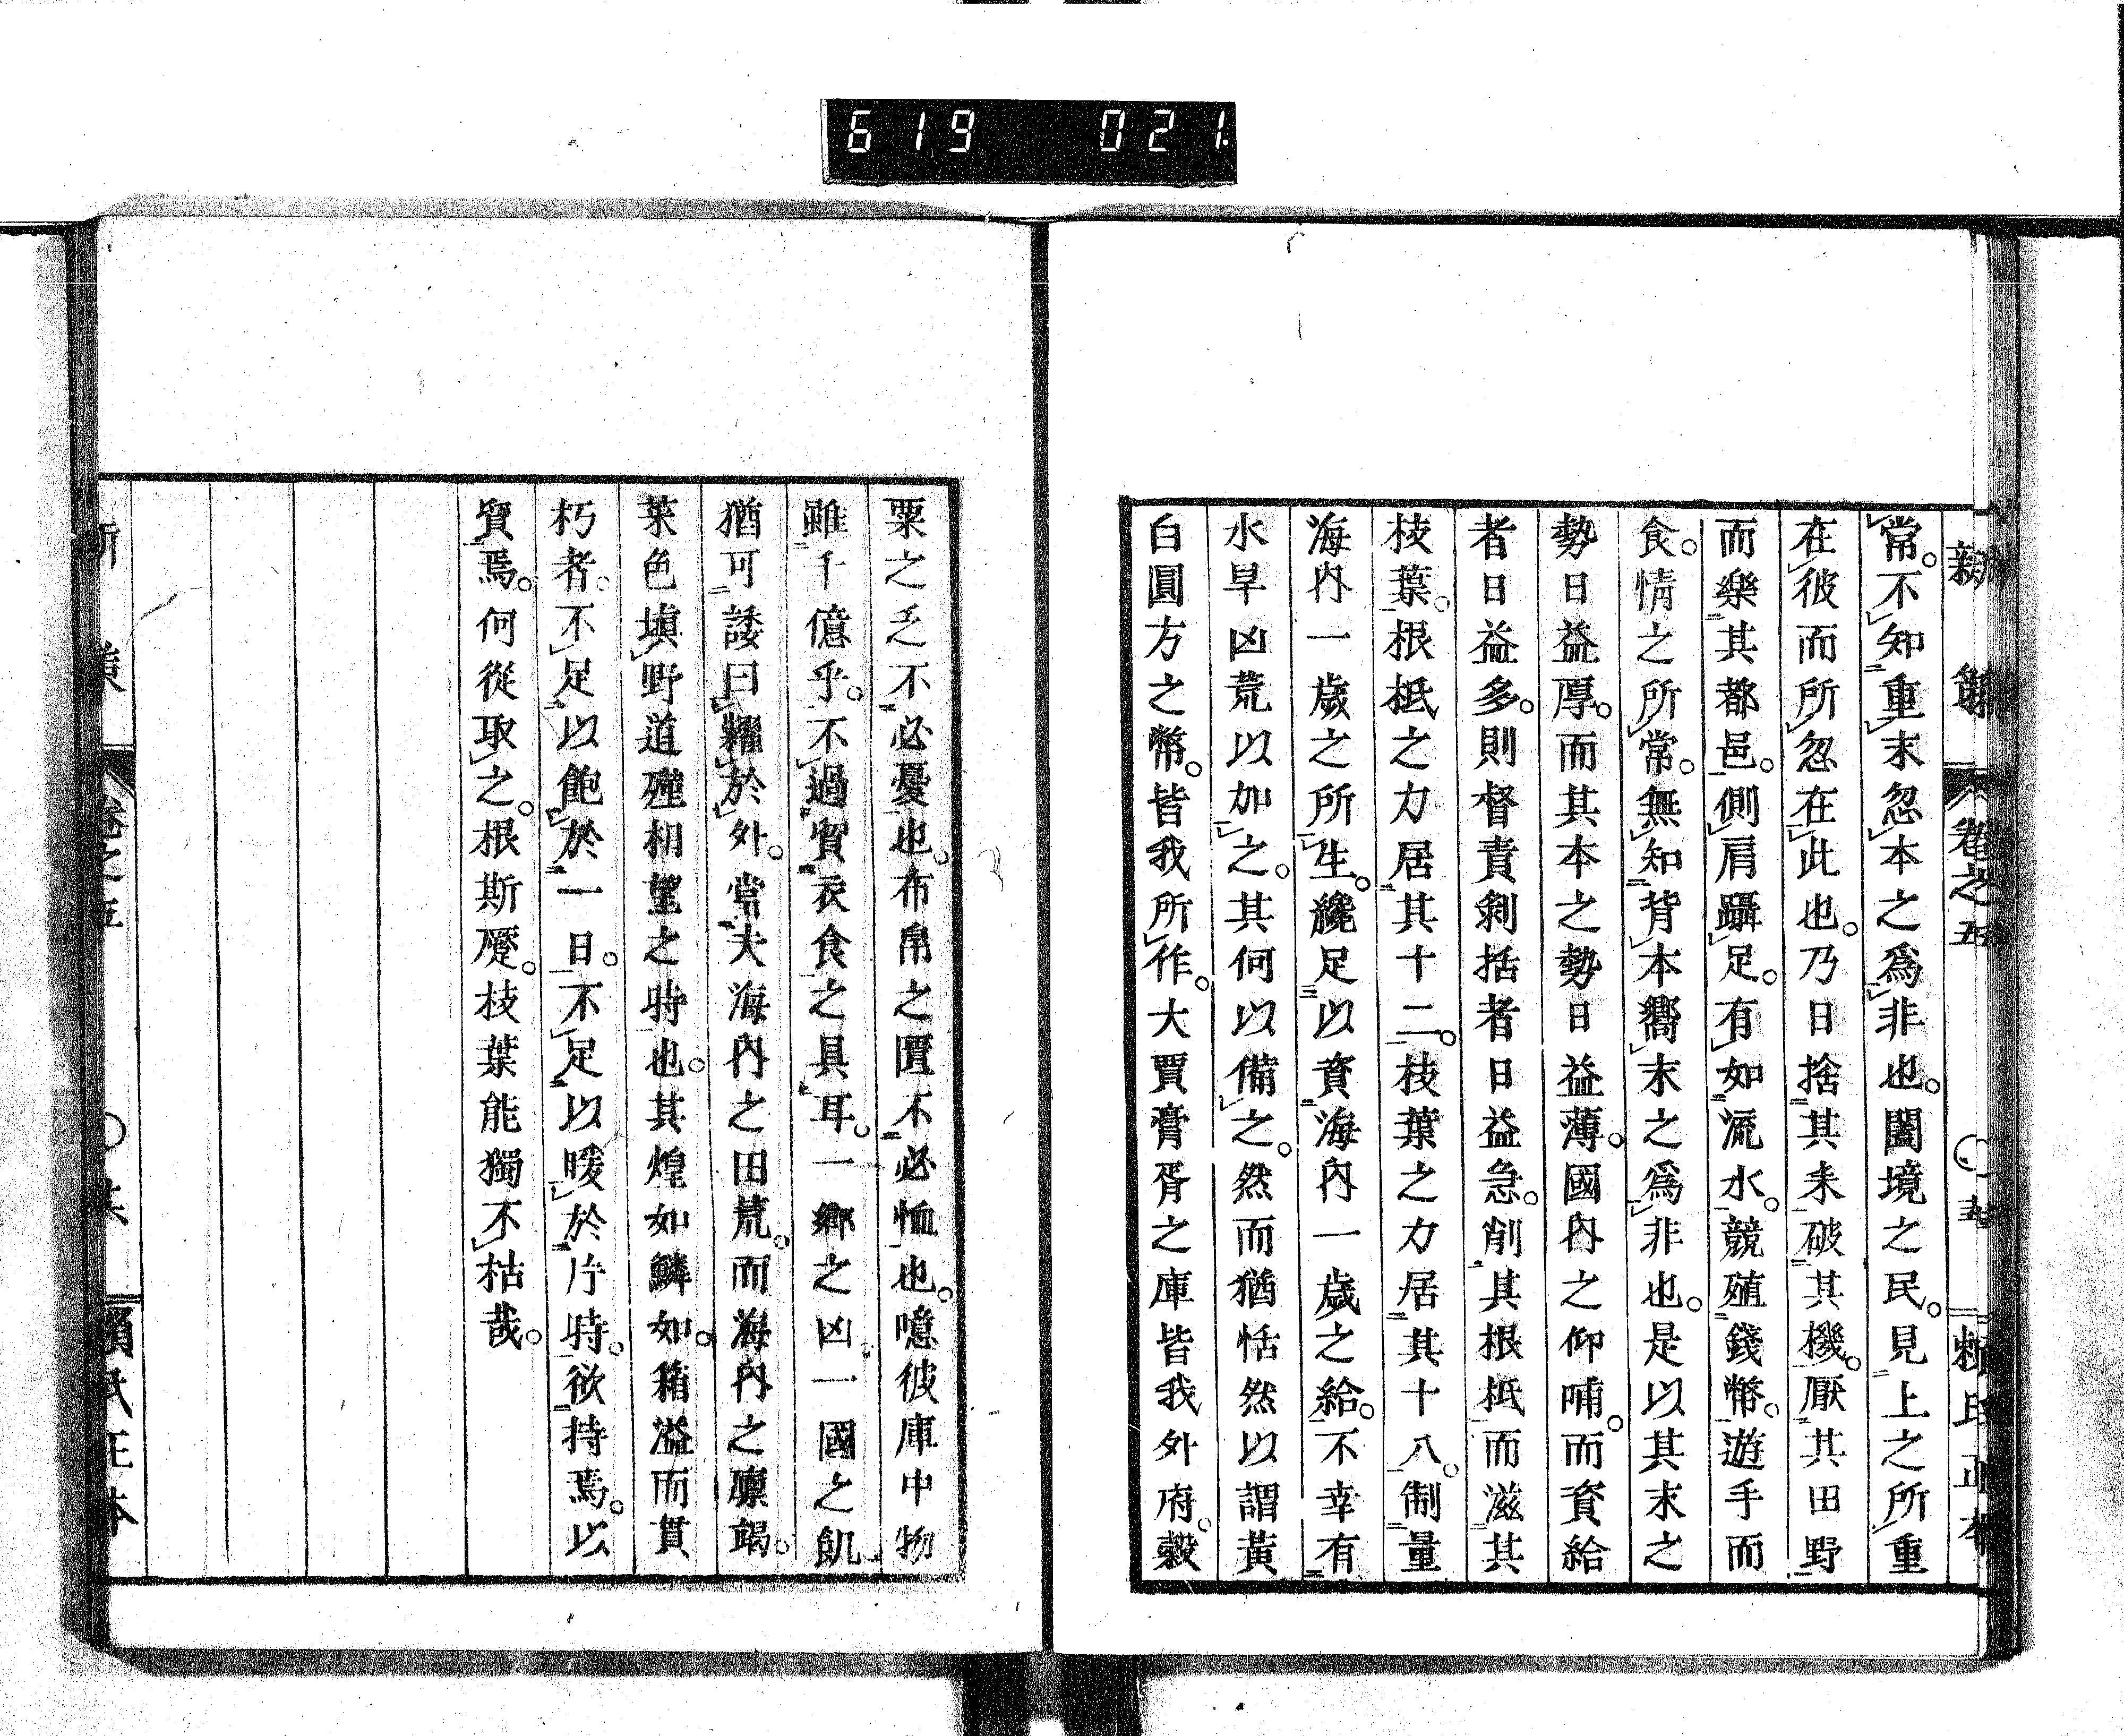 619 021
新策 卷之五 頼氏正本
常。不知重末忽本之爲非也。闔境之民。見上之所重
在彼而所忽在此也。乃日捨其耒破其機。厭其田野
而樂其都邑。側肩躡足。有如流水。競殖錢幣。遊手而
食。情之所常。無知背本嚮末之爲非也。是以其末之
勢日益厚。而其本之勢日益薄。國内之仰哺。而資給
者日益多。則督責剝括者日益急。削其根柢而滋其
枝葉。根柢之力居其十二。枝葉之力居其十八。制量
海内一歲之所生。纔足以資海内一歲之給。不幸有
水旱凶荒以加之。其何以備之。然而猶恬然以謂黃
白圓方之幣。皆我所作。大賈膏胥之庫皆我外府。穀
粟之乏不必憂也。布帛之匱不必恤也。噫彼庫中物
雖千億乎。不過貿衣食之具耳。一鄉之凶。一國之飢
猶可諉曰糶於外。當夫海内之田荒。而海内之廩竭。
菜色塡野道殣相望之時也。其煌如鱗如。箱溢而貫
朽者。不足以飽於一日。不足以暖於片時。欲持焉。以
貿焉。何從取之。根斯蹙。枝葉能獨不枯哉。
新策 卷之五 頼氏正本